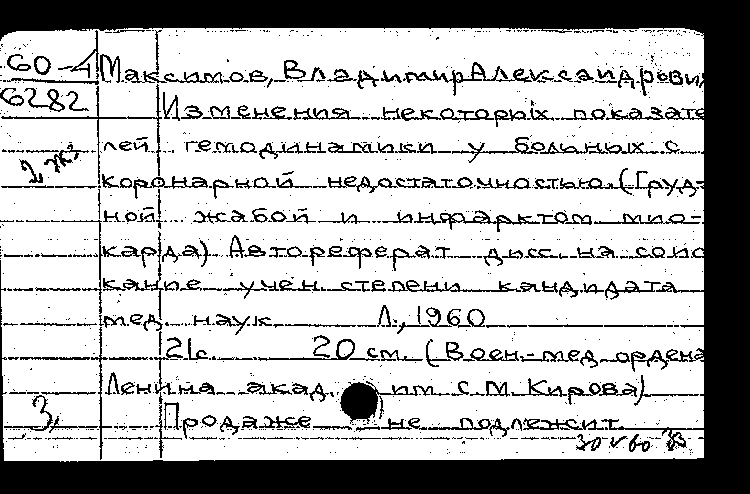 60-4 Максимов, Владимир Александрови
6282 Изменения некоторых показате
лей гемодинамики у больных с
коронарной недостаточностью. (Груд-
ной жабой и инфарктом мио-
карда) Автореферат дисс. на соис
кание учен. степени кандидата
мед. наук Л., 1960
21с. 20 см. (Воен.-мед. ордена
Ленина акад. им С.М. Кирова)
3, Продаже не подлежит.